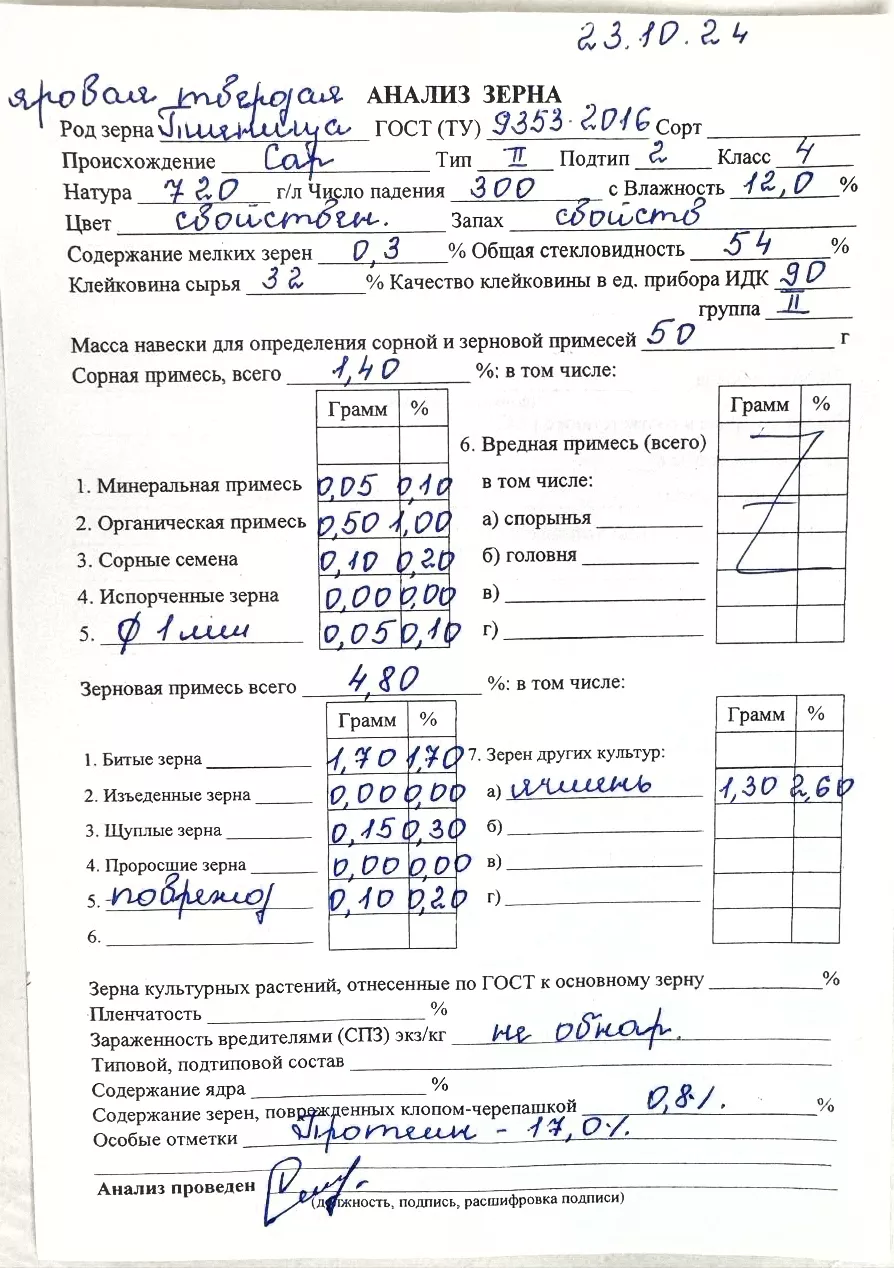 23.10.24
яровая твердая АНАЛИЗ ЗЕРНА
Род зерна Пшеница ГОСТ (ТУ) 9353-2016 Сорт
Происхождение Сар Тип II Подтип 2 Класс 4
Натура 720 г/л Число падения 300 с Влажность 12,0 %
Цвет свойствен. Запах свойств
Содержание мелких зерен 0,3 % Общая стекловидность 54 %
Клейковина сырья 32 % Качество клейковины в ед. прибора ИДК 90
группа II
Масса навески для определения сорной и зерновой примесей 50 г
Сорная примесь, всего 1,40 %: в том числе:
Грамм % Грамм %
6. Вредная примесь (всего)
1. Минеральная примесь 0,05 0,10 в том числе:
2. Органическая примесь 0,50 1,00 а) спорынья
3. Сорные семена 0,10 0,20 б) головня
4. Испорченные зерна 0,00 0,00 в)
5. Ф 1 мм 0,05 0,10 г)
Зерновая примесь всего 4,80 %: в том числе:
Грамм % Грамм %
1. Битые зерна 1,70 1,70 7. Зерен других культур:
2. Изъеденные зерна 0,00 0,00 а) ячмень 1,30 2,60
3. Щуплые зерна 0,15 0,30 б)
4. Проросшие зерна 0,00 0,00 в)
5. поврежд 0,10 0,20 г)
6.
Зерна культурных растений, отнесенные по ГОСТ к основному зерну %
Пленчатость %
Зараженность вредителями (СПЗ) экз/кг не обнар.
Типовой, подтиповой состав
Содержание ядра %
Содержание зерен, поврежденных клопом-черепашкой 0,8%. %
Особые отметки Протеин - 17,0%.
Анализ проведен
(должность, подпись, расшифровка подписи)